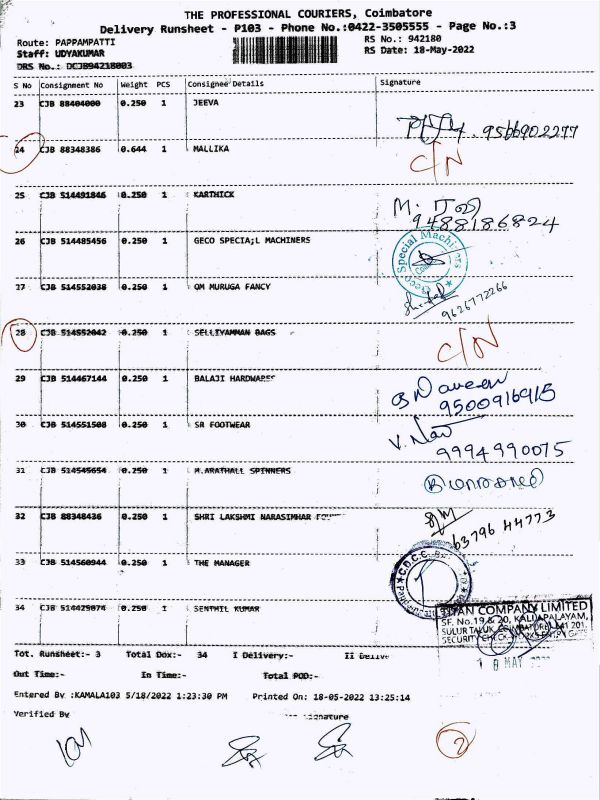 THE PROFESSIONAL COURIERS, Coimbatore
Delivery Runsheet - P103 - Phone No.:0422-3505555 - Page No.:3
Route: PAPPAMPATTI RS No.: 942180
Staff: UDYAKUMAR RS Date: 18-May-2022
DRS No.: DCJB94218003
S No Consignment No Weight PCS Consignee Details Signature
23 CJB 88404000 0.250 1 JEEVA
9566902277
24 CJB 88348386 0.644 1 MALLIKA C/N
25 CJB 514491846 0.250 1 KARTHICK M.
9488186824
26 CJB 514485456 0.250 1 GECO SPECIA;L MACHINERS
Geco Special Machiners
27 CJB 514552038 0.250 1 OM MURUGA FANCY
9626772266
28 CJB 514552042 0.250 1 SELLIYAMMAN BAGS C/N
29 CJB 514467144 0.250 1 BALAJI HARDWARES
9500916915
30 CJB 514551508 0.250 1 SR FOOTWEAR V.
9994990075
31 CJB 514545654 0.250 1 M.ARATHALL SPINNERS
32 CJB 88348436 0.250 1 SHRI LAKSHMI NARASIMHAR
63796 44773
33 CJB 514560944 0.250 1 THE MANAGER
34 CJB 514429074 0.250 1 SENTHIL KUMAR
TITAN COMPANY LIMITED
SF. No.19 & 20, KALIAPALAYAM,
SULUR TALUK, COIMBATORE-641 201.
18 MAY
Tot. Runsheet:- 3 Total Dox:- 34 I Delivery:- Ii
Out Time:- In Time:- Total POD:-
Entered By :KAMALA103 5/18/2022 1:23:30 PM Printed On: 18-05-2022 13:25:14
Verified By Signature
2